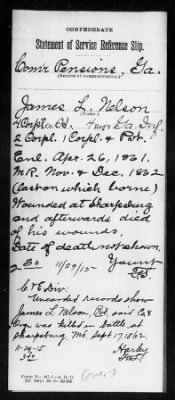 CONFEDERATE
Statement of Service Reference Slip.
Com'r Pensions, Ga.
(Source of communication.)
James L. Nelson
(Name.)
Corpl. Co. 4 Ga. Inf.
2 Corpl. 1 Corpl. & Pvt.
Enl. Apr. 26, 1861.
M.R. Nov. & Dec. 1862
(last on which borne)
Wounded at Sharpsburg
and afterwards died
of his wounds,
Date of death not shown.
11/29/15
C & E Div:
Uncarded records show
James L. Nelson, Pvt, said Co &
Org. was killed in battle at
Sharpsburg, Md. Sept 17, 1862.
(over)